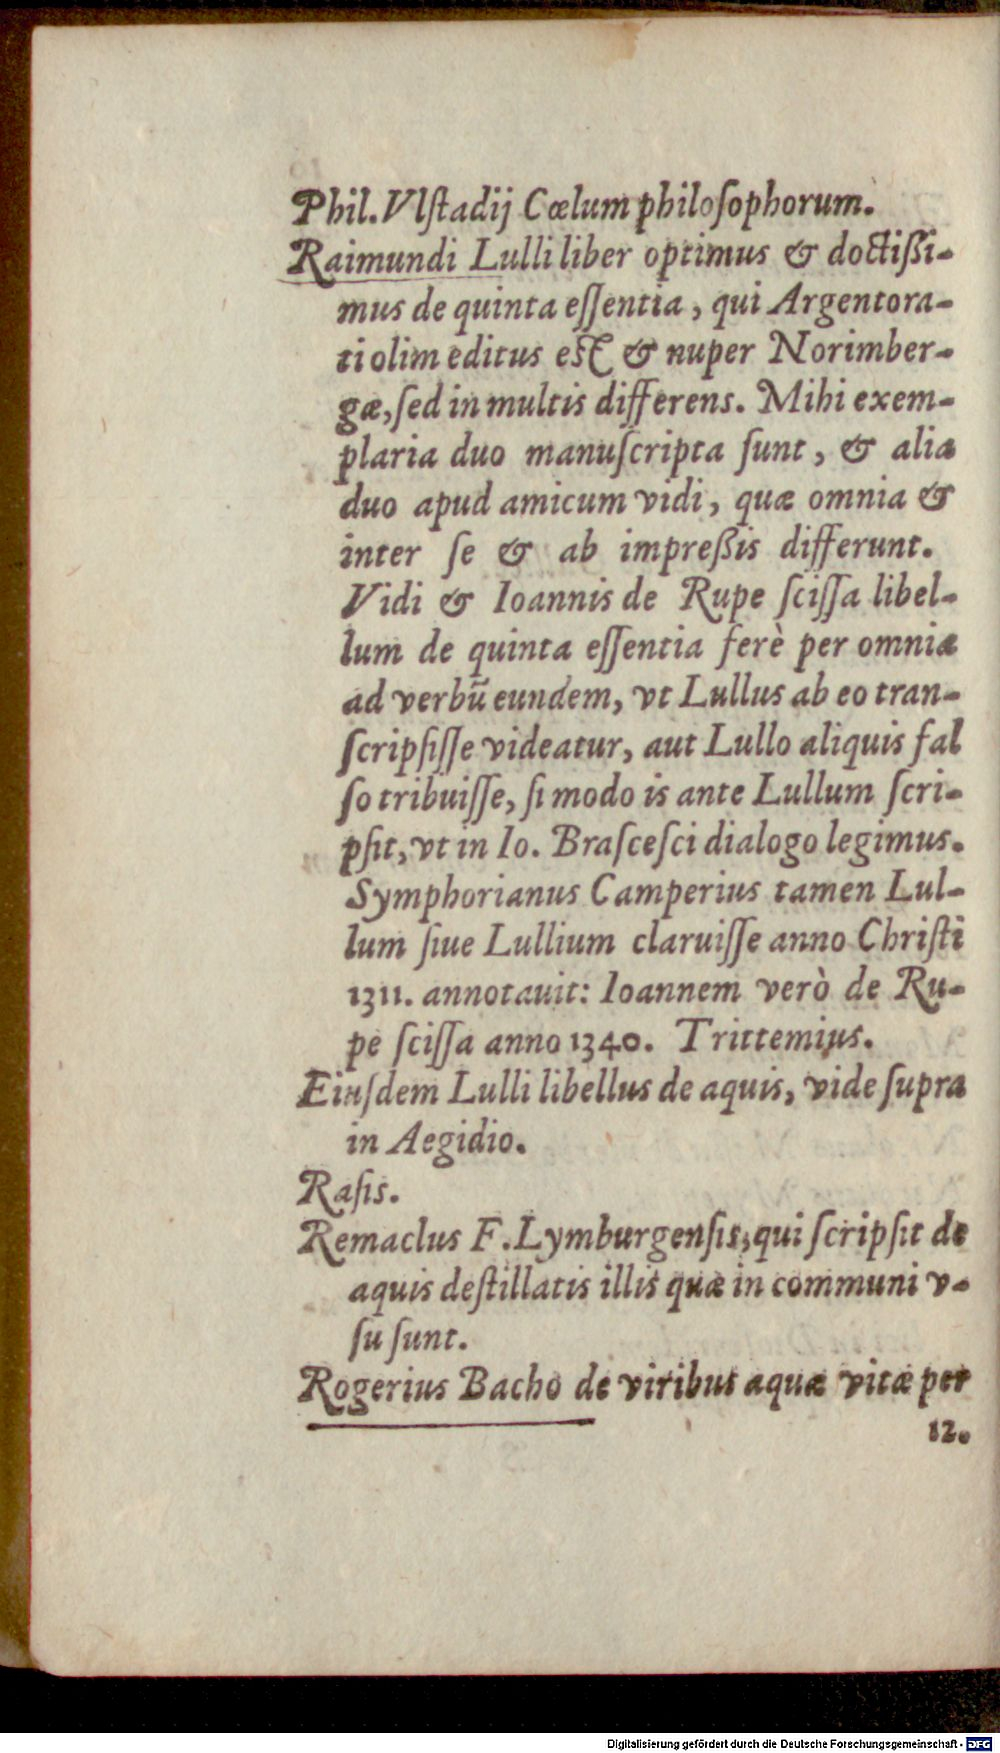 Phil. Vlſtadij Cœlum philoſophorum.
Raimundi Lulli liber optimus & doctißi-
mus de quinta eſſentia, qui Argentora-
ti olim editus est & nuper Norimber-
gæ, ſed in multis differens. Mihi exem-
plaria duo manuſcripta ſunt, & alia
duo apud amicum vidi, quæ omnia &
inter ſe & ab impreßis differunt.
Vidi & Ioannis de Rupe ſciſſa libel-
lum de quinta eſſentia ferè per omnia
ad verbũ eundem, vt Lullus ab eo tran-
ſcripſiſſe videatur, aut Lullo aliquis fal
ſo tribuiſſe, ſi modo is ante Lullum ſcri-
pſit, vt in Io. Braſceſci dialogo legimus.
Symphorianus Camperius tamen Lul-
lum ſiue Lullium claruiſſe anno Chriſti
1311. annotauit: Ioannem verò de Ru-
pe ſciſſa anno 1340. Trittemius.
Eiuſdem Lulli libellus de aquis, vide ſupra
in Aegidio.
Raſis.
Remaclus F. Lymburgenſis, qui ſcripſit de
aquis deſtillatis illis quæ in communi v-
ſu ſunt.
Rogerius Bacho de viribus aquæ vitæ per
12.
Digitalisierung gefördert durch die Deutsche Forschungsgemeinschaft - DFG